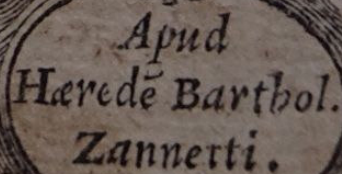 Apud
Hæredē Barthol.
Zannetti.